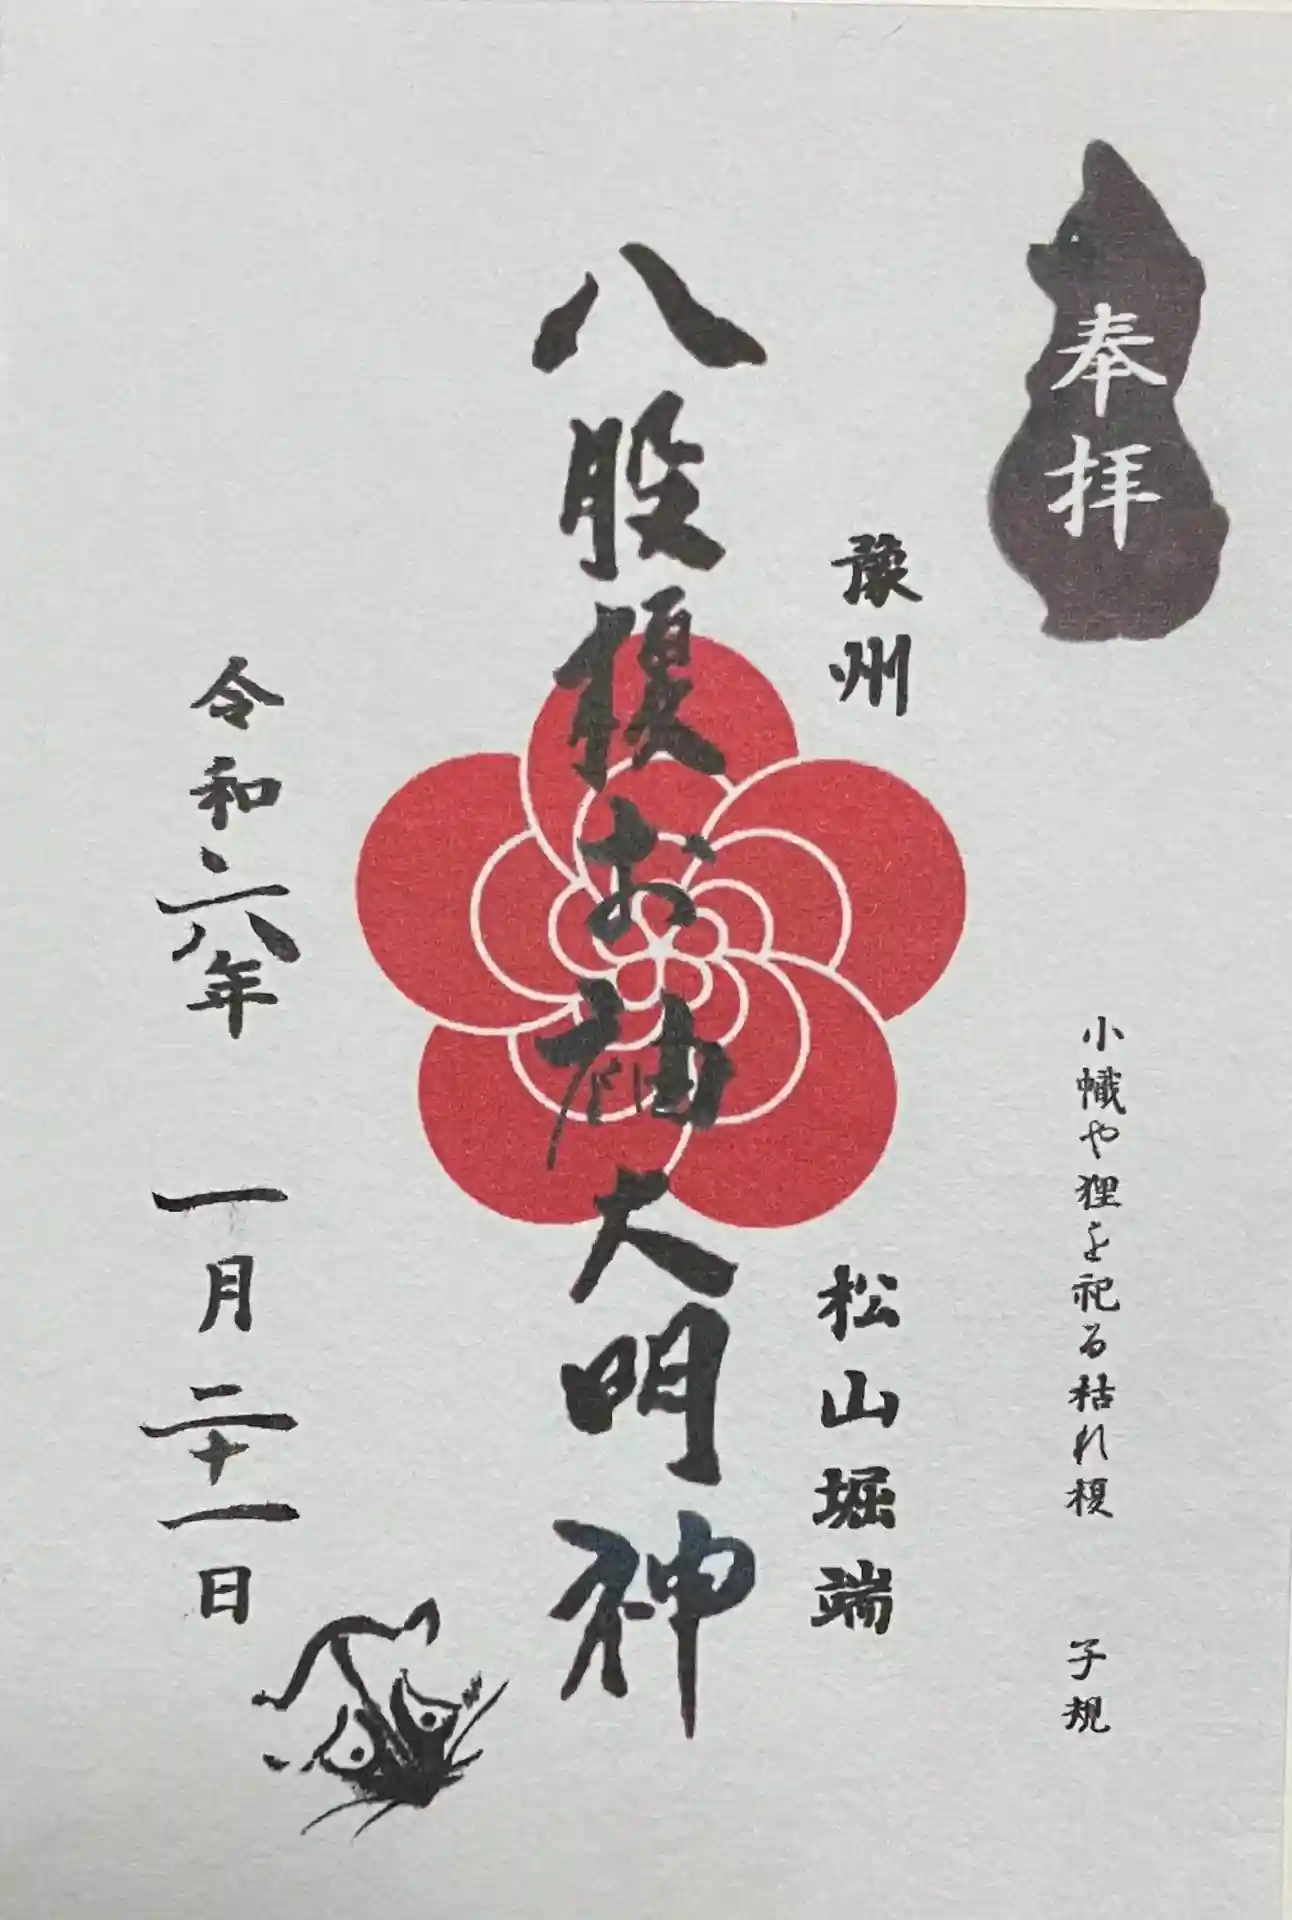 奉拝
小幟や狸を祀る枯れ榎　子規
豫州　松山堀端
八股榎お袖大明神
令和六年　一月二十一日